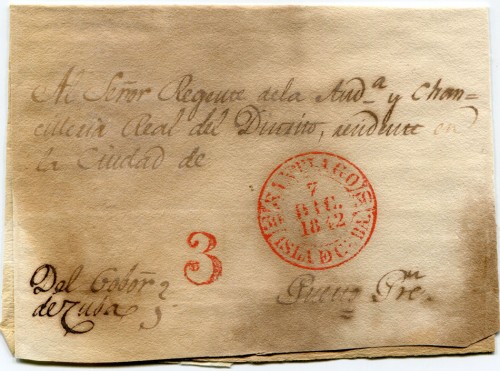 Al Señor Regente dela Aud.ª y Chan=
cilleria Real del Distrito, residente en
la Ciudad de
SANTIAGO
7
DIC.
1842
ISLA DE CUBA
3
Del Gobor
de Cuba
Puerto Pre.